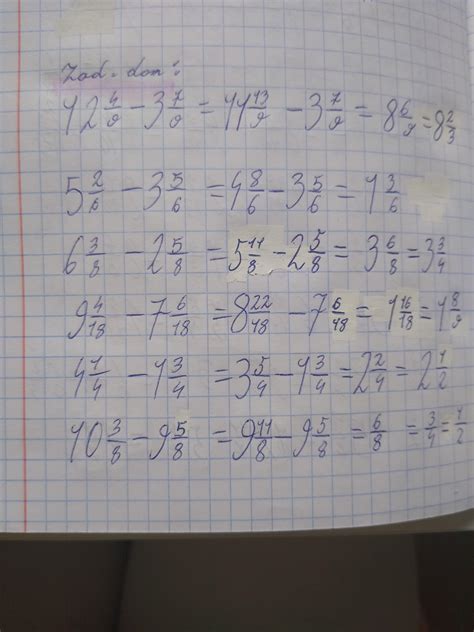 Zad. dom:
12 4/9 - 3 7/9 = 11 13/9 - 3 7/9 = 8 6/9 = 8 2/3
5 2/6 - 3 5/6 = 4 8/6 - 3 5/6 = 1 3/6
6 3/8 - 2 5/8 = 5 11/8 - 2 5/8 = 3 6/8 = 3 3/4
9 4/18 - 7 6/18 = 8 22/18 - 7 6/18 = 1 16/18 = 1 8/9
4 1/4 - 1 3/4 = 3 5/4 - 1 3/4 = 2 2/4 = 2 1/2
10 3/8 - 9 5/8 = 9 11/8 - 9 5/8 = 6/8 = 3/4 = 1/2